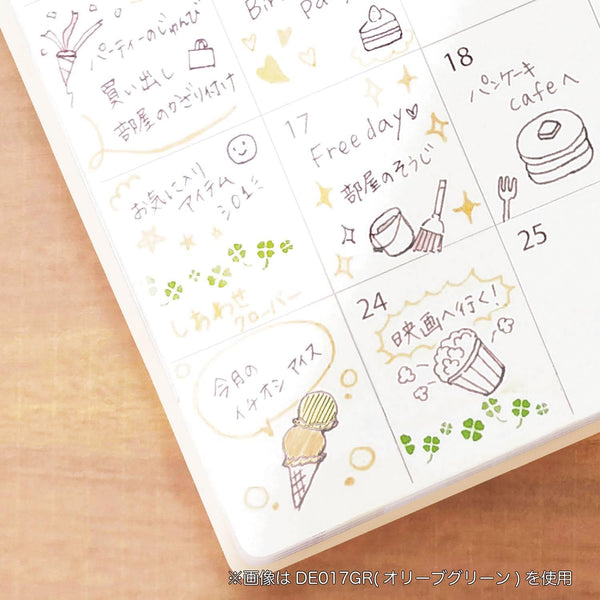 パーティーのじゅんび
買い出し
部屋のかざり付け
Bir
Pa
お気に入り
アイテム
しあわせ
クローバー
17
Free day♡
部屋のそうじ
18
パンケーキ
cafeへ
今月の
イチオシ アイス
24
映画へ行く!
25
※画像は DE017GR(オリーブグリーン)を使用